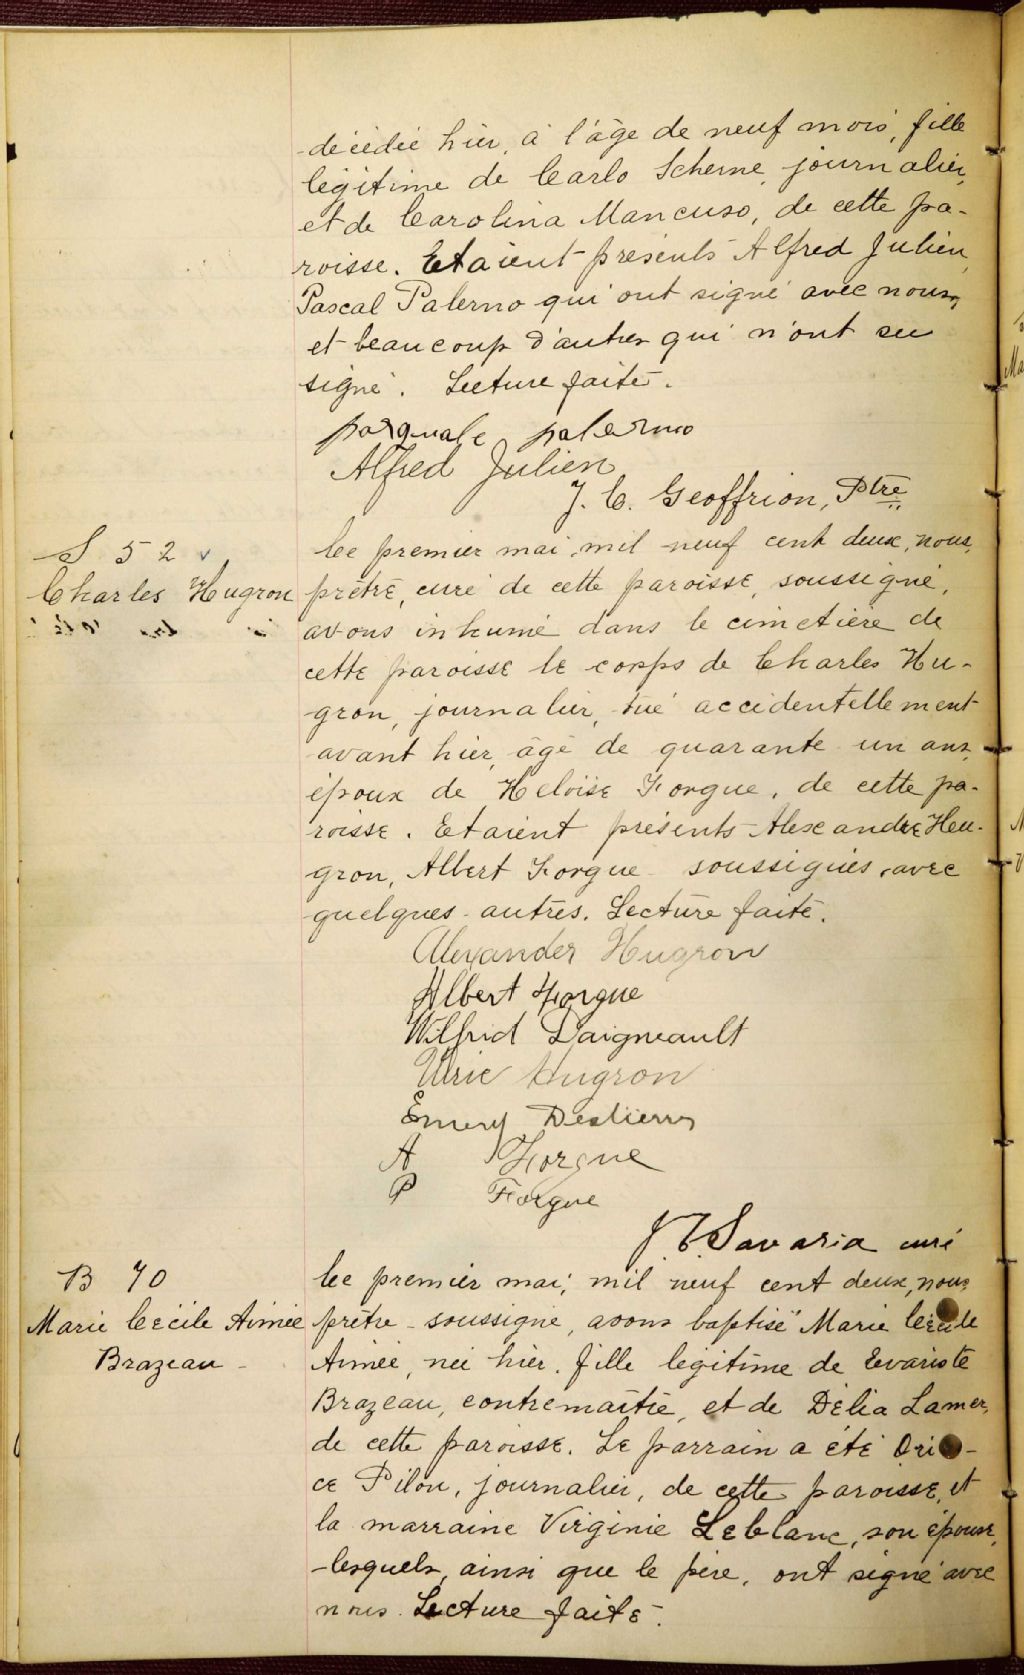 décédée hier, à l'âge de neuf mois, fille
légitime de Carlo Scheme, journalier,
et de Carolina Mancuso, de cette pa-
roisse. Etaient présents Alfred Julien,
Pascal Palerno qui ont signé avec nous,
et beaucoup d'autres qui n'ont su
signé. Lecture faite.
pasquale palermo
Alfred Julien
J. C. Geoffrion, Ptre
S 52
Charles Hugron
Le premier mai, mil neuf cent deux, nous,
prêtre, curé de cette paroisse, soussigné,
avons inhumé dans le cimetière de
cette paroisse le corps de Charles Hu-
gron, journalier, tué accidentellement
avant hier, âgé de quarante un ans,
époux de Héloïse Forgue, de cette pa-
roisse. Etaient présents Alexandre Heu-
gron, Albert Forgue soussignés, avec
quelques autres. Lecture faite.
Alexander Hugron
Albert Forgue
Wilfrid Daigneault
Ulric Hugron
Emery Deslierres
A Forgue
P Forgue
Savaria curé
B 70
Marie Cécile Aimée
Brazeau
Le premier mai, mil neuf cent deux, nous,
prêtre soussigné, avons baptisé Marie Cécile
Aimée, née hier, fille légitime de Evariste
Brazeau, contremaître, et de Délia Lamer,
de cette paroisse. Le parrain a été Ori-
ce Pilon, journalier, de cette paroisse, et
la marraine Virginie Leblanc, son épouse,
lesquels, ainsi que le père, ont signé avec
nous. Lecture faite.